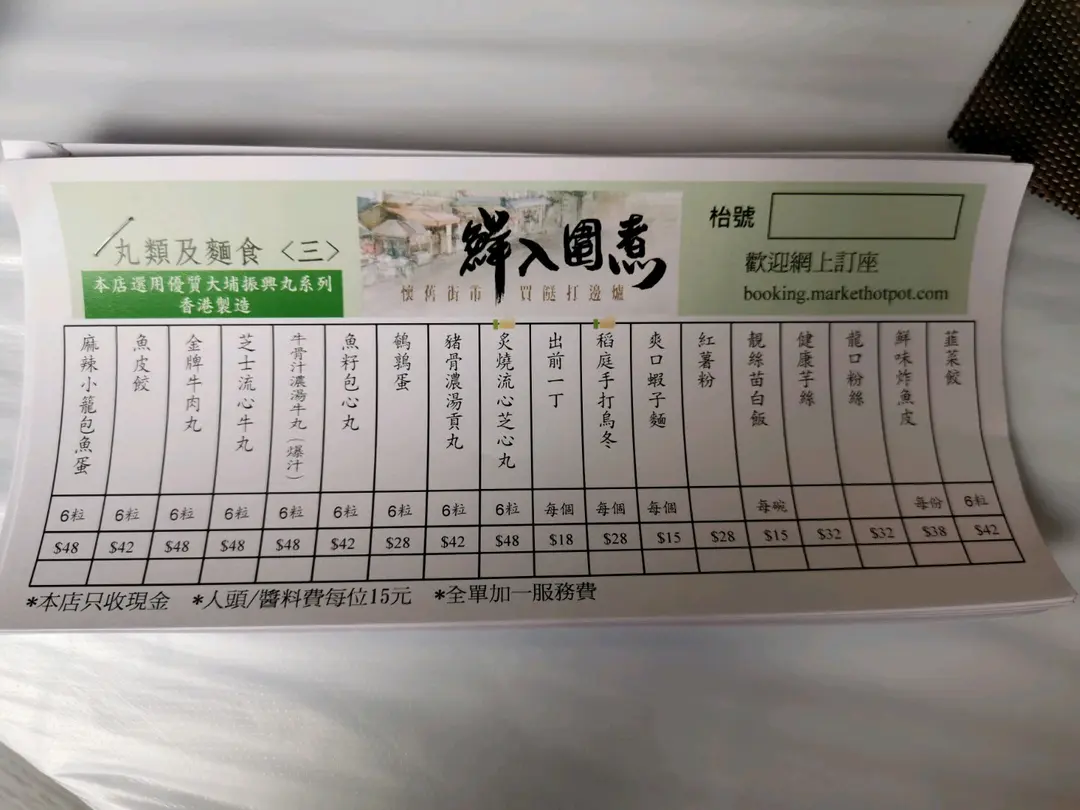 丸類及麵食〈三〉
本店選用優質大埔振興丸系列
香港製造
鮮入圍煮
懷舊街市 買餸打邊爐
枱號
歡迎網上訂座
booking.markethotpot.com
麻辣小籠包魚蛋 6粒 $48
魚皮餃 6粒 $42
金牌牛肉丸 6粒 $48
芝士流心牛丸 6粒 $48
牛骨汁濃湯牛丸(爆汁) 6粒 $48
魚籽包心丸 6粒 $42
鵪鶉蛋 6粒 $28
豬骨濃湯貢丸 6粒 $42
炙燒流心芝心丸 6粒 $48
出前一丁 每個 $18
稻庭手打烏冬 每個 $28
爽口蝦子麵 每個 $15
紅薯粉 $28
靚絲苗白飯 每碗 $15
健康芋絲 $32
龍口粉絲 $32
鮮味炸魚皮 每份 $38
韮菜餃 6粒 $42
*本店只收現金 *人頭/醬料費每位15元 *全單加一服務費